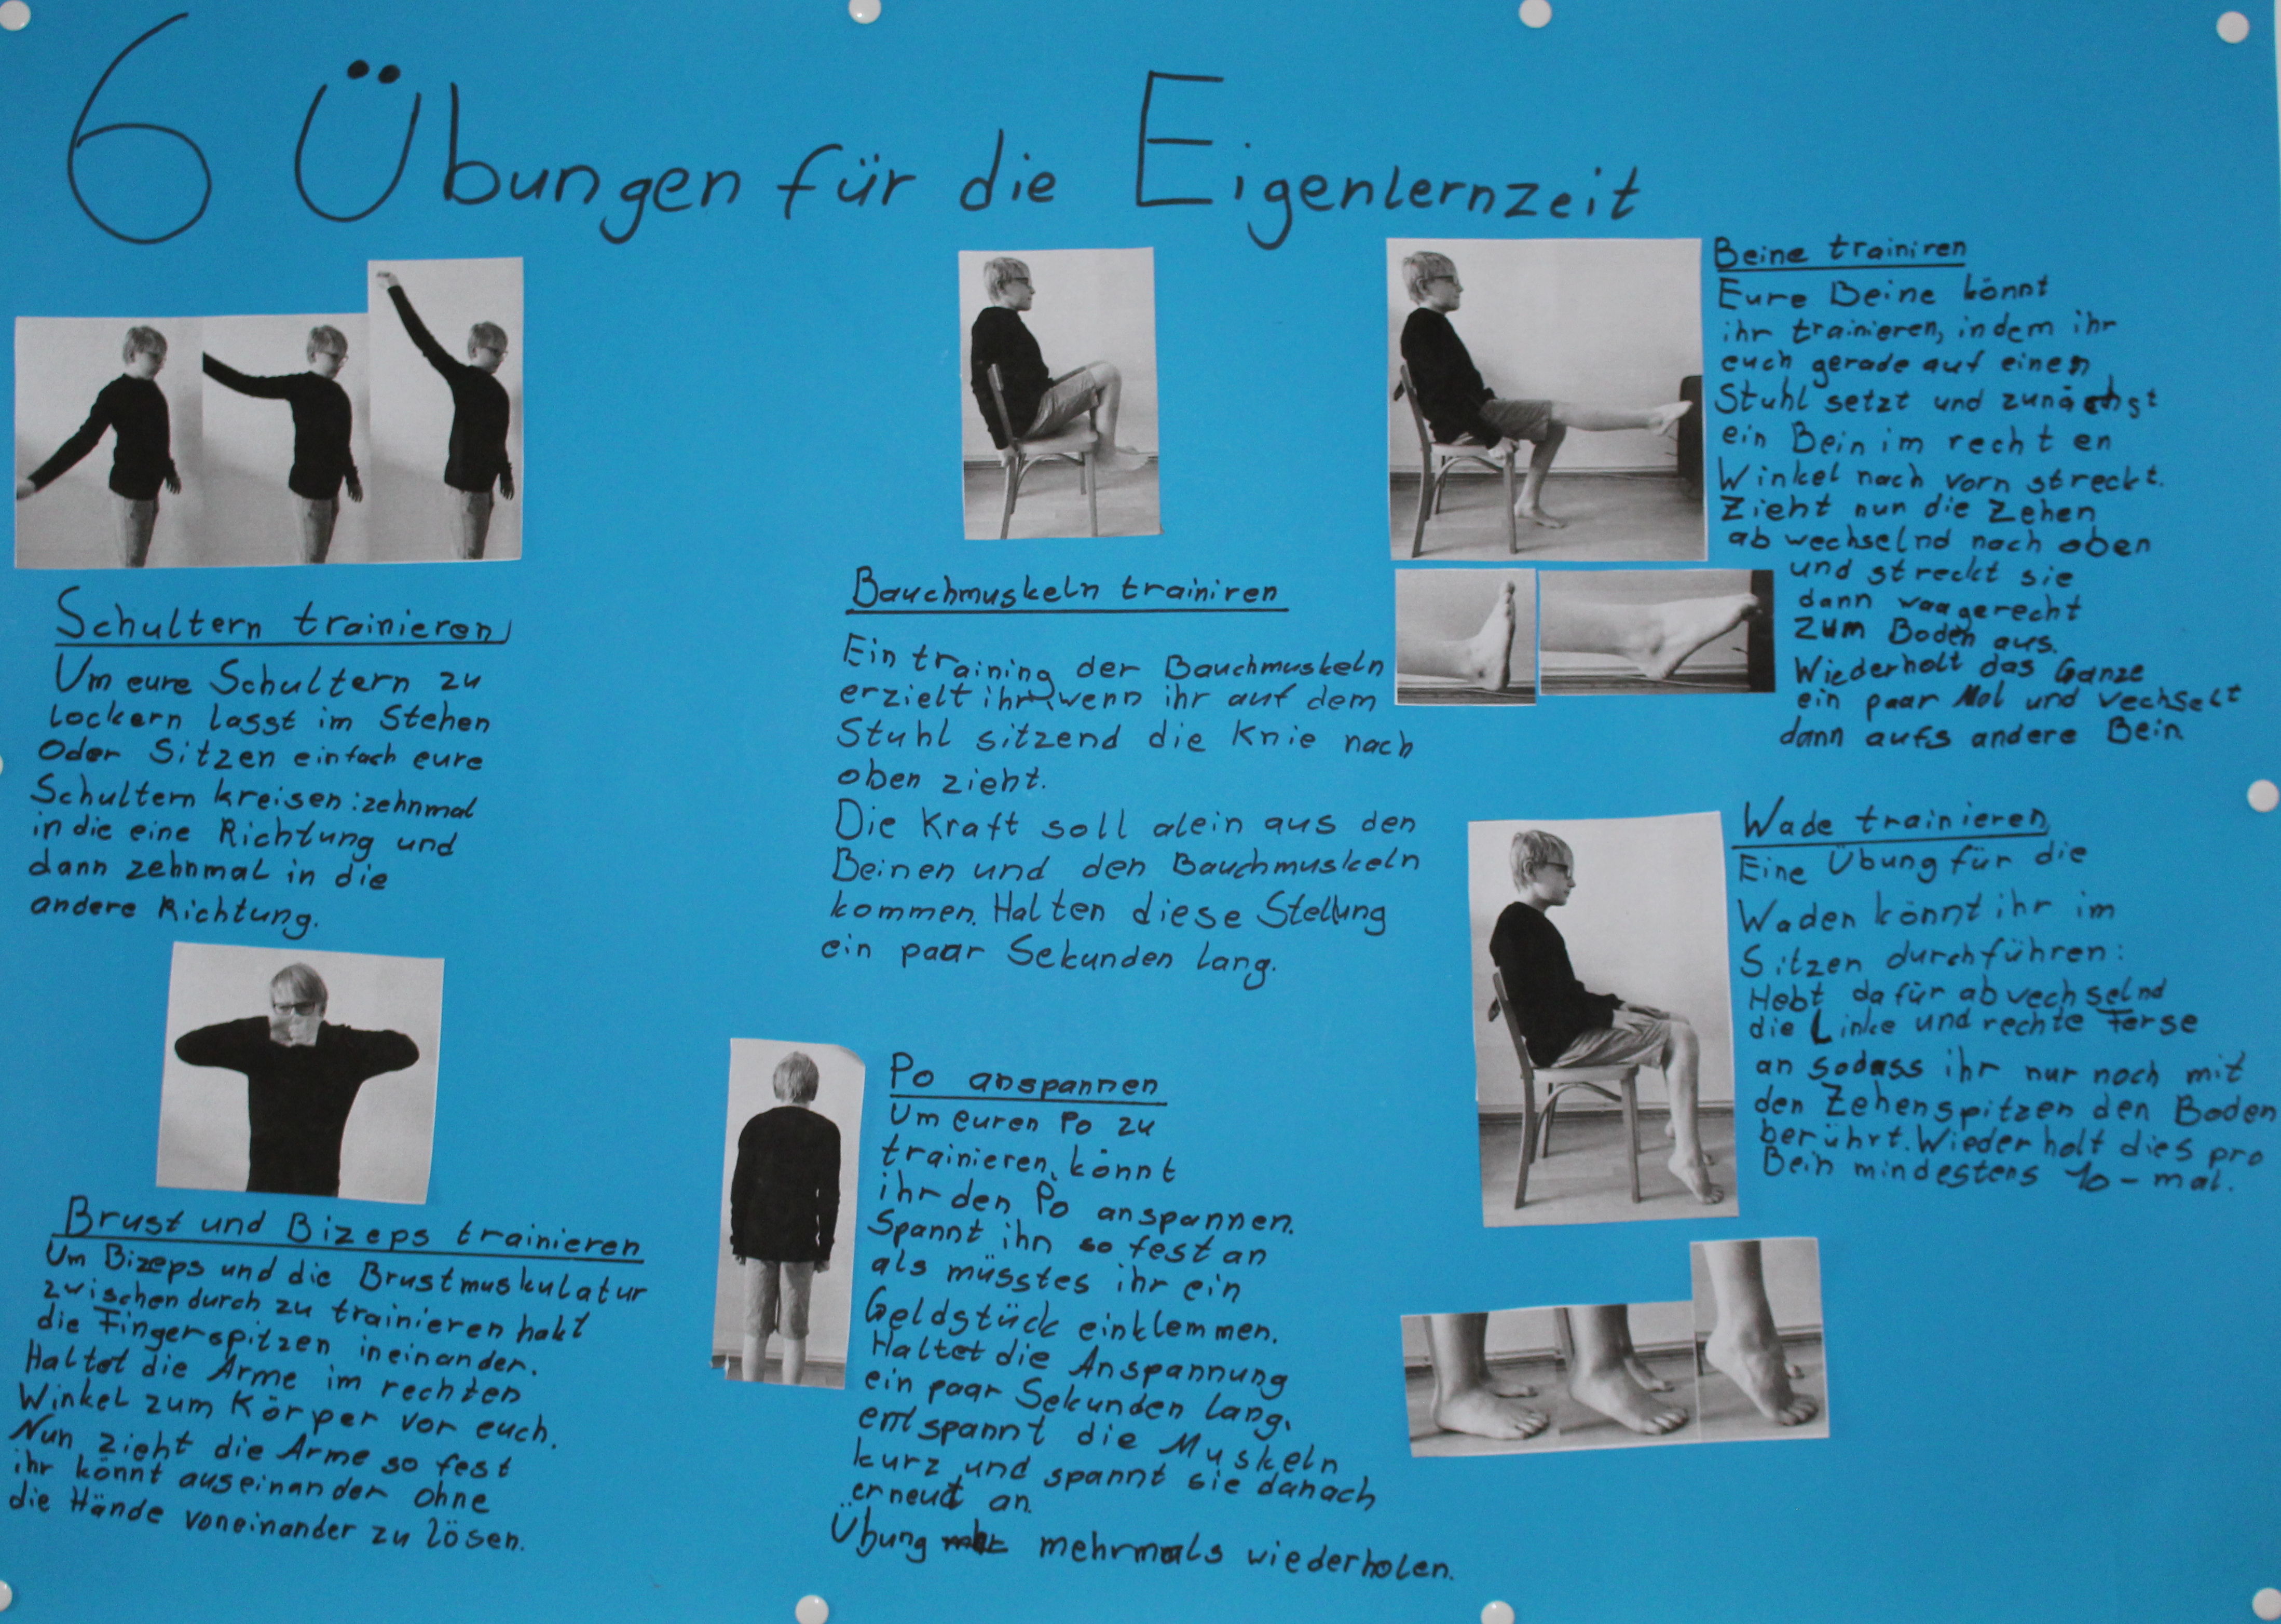 6 Übungen für die Eigenlernzeit
Schultern trainieren
Um eure Schultern zu
lockern lasst im Stehen
Oder Sitzen einfach eure
Schultern kreisen: zehnmal
in die eine Richtung und
dann zehnmal in die
andere Richtung.
Brust und Bizeps trainieren
Um Bizeps und die Brustmuskulatur
zwischendurch zu trainieren hakt
die Fingerspitzen ineinander.
Haltet die Arme im rechten
Winkel zum Körper vor euch.
Nun zieht die Arme so fest
ihr könnt auseinander ohne
die Hände voneinander zu lösen.
Bauchmuskeln trainiren
Ein training der Bauchmuskeln
erzielt ihr, wenn ihr auf dem
Stuhl sitzend die Knie nach
oben zieht.
Die Kraft soll alein aus den
Beinen und den Bauchmuskeln
kommen. Halten diese Stellung
ein paar Sekunden lang.
Po anspannen
Um euren Po zu
trainieren, könnt
ihr den Po anspannen.
Spannt ihn so fest an
als müsstes ihr ein
Geldstück einklemmen.
Haltet die Anspannung
ein paar Sekunden lang,
entspannt die Muskeln
kurz und spannt sie danach
erneut an.
Übung mehrmals wiederholen.
Beine trainiren
Eure Beine könnt
ihr trainieren, indem ihr
euch gerade auf einen
Stuhl setzt und zunächst
ein Bein im rechten
Winkel nach vorn streckt.
Zieht nun die Zehen
abwechselnd nach oben
und streckt sie
dann waagerecht
zum Boden aus.
Wiederholt das Ganze
ein paar Mal und wechselt
dann aufs andere Bein
Wade trainieren
Eine Übung für die
Waden könnt ihr im
Sitzen durchführen:
Hebt dafür abwechselnd
die Linke und rechte Ferse
an sodass ihr nur noch mit
den Zehenspitzen den Boden
berührt. Wiederholt dies pro
Bein mindestens 10-mal.